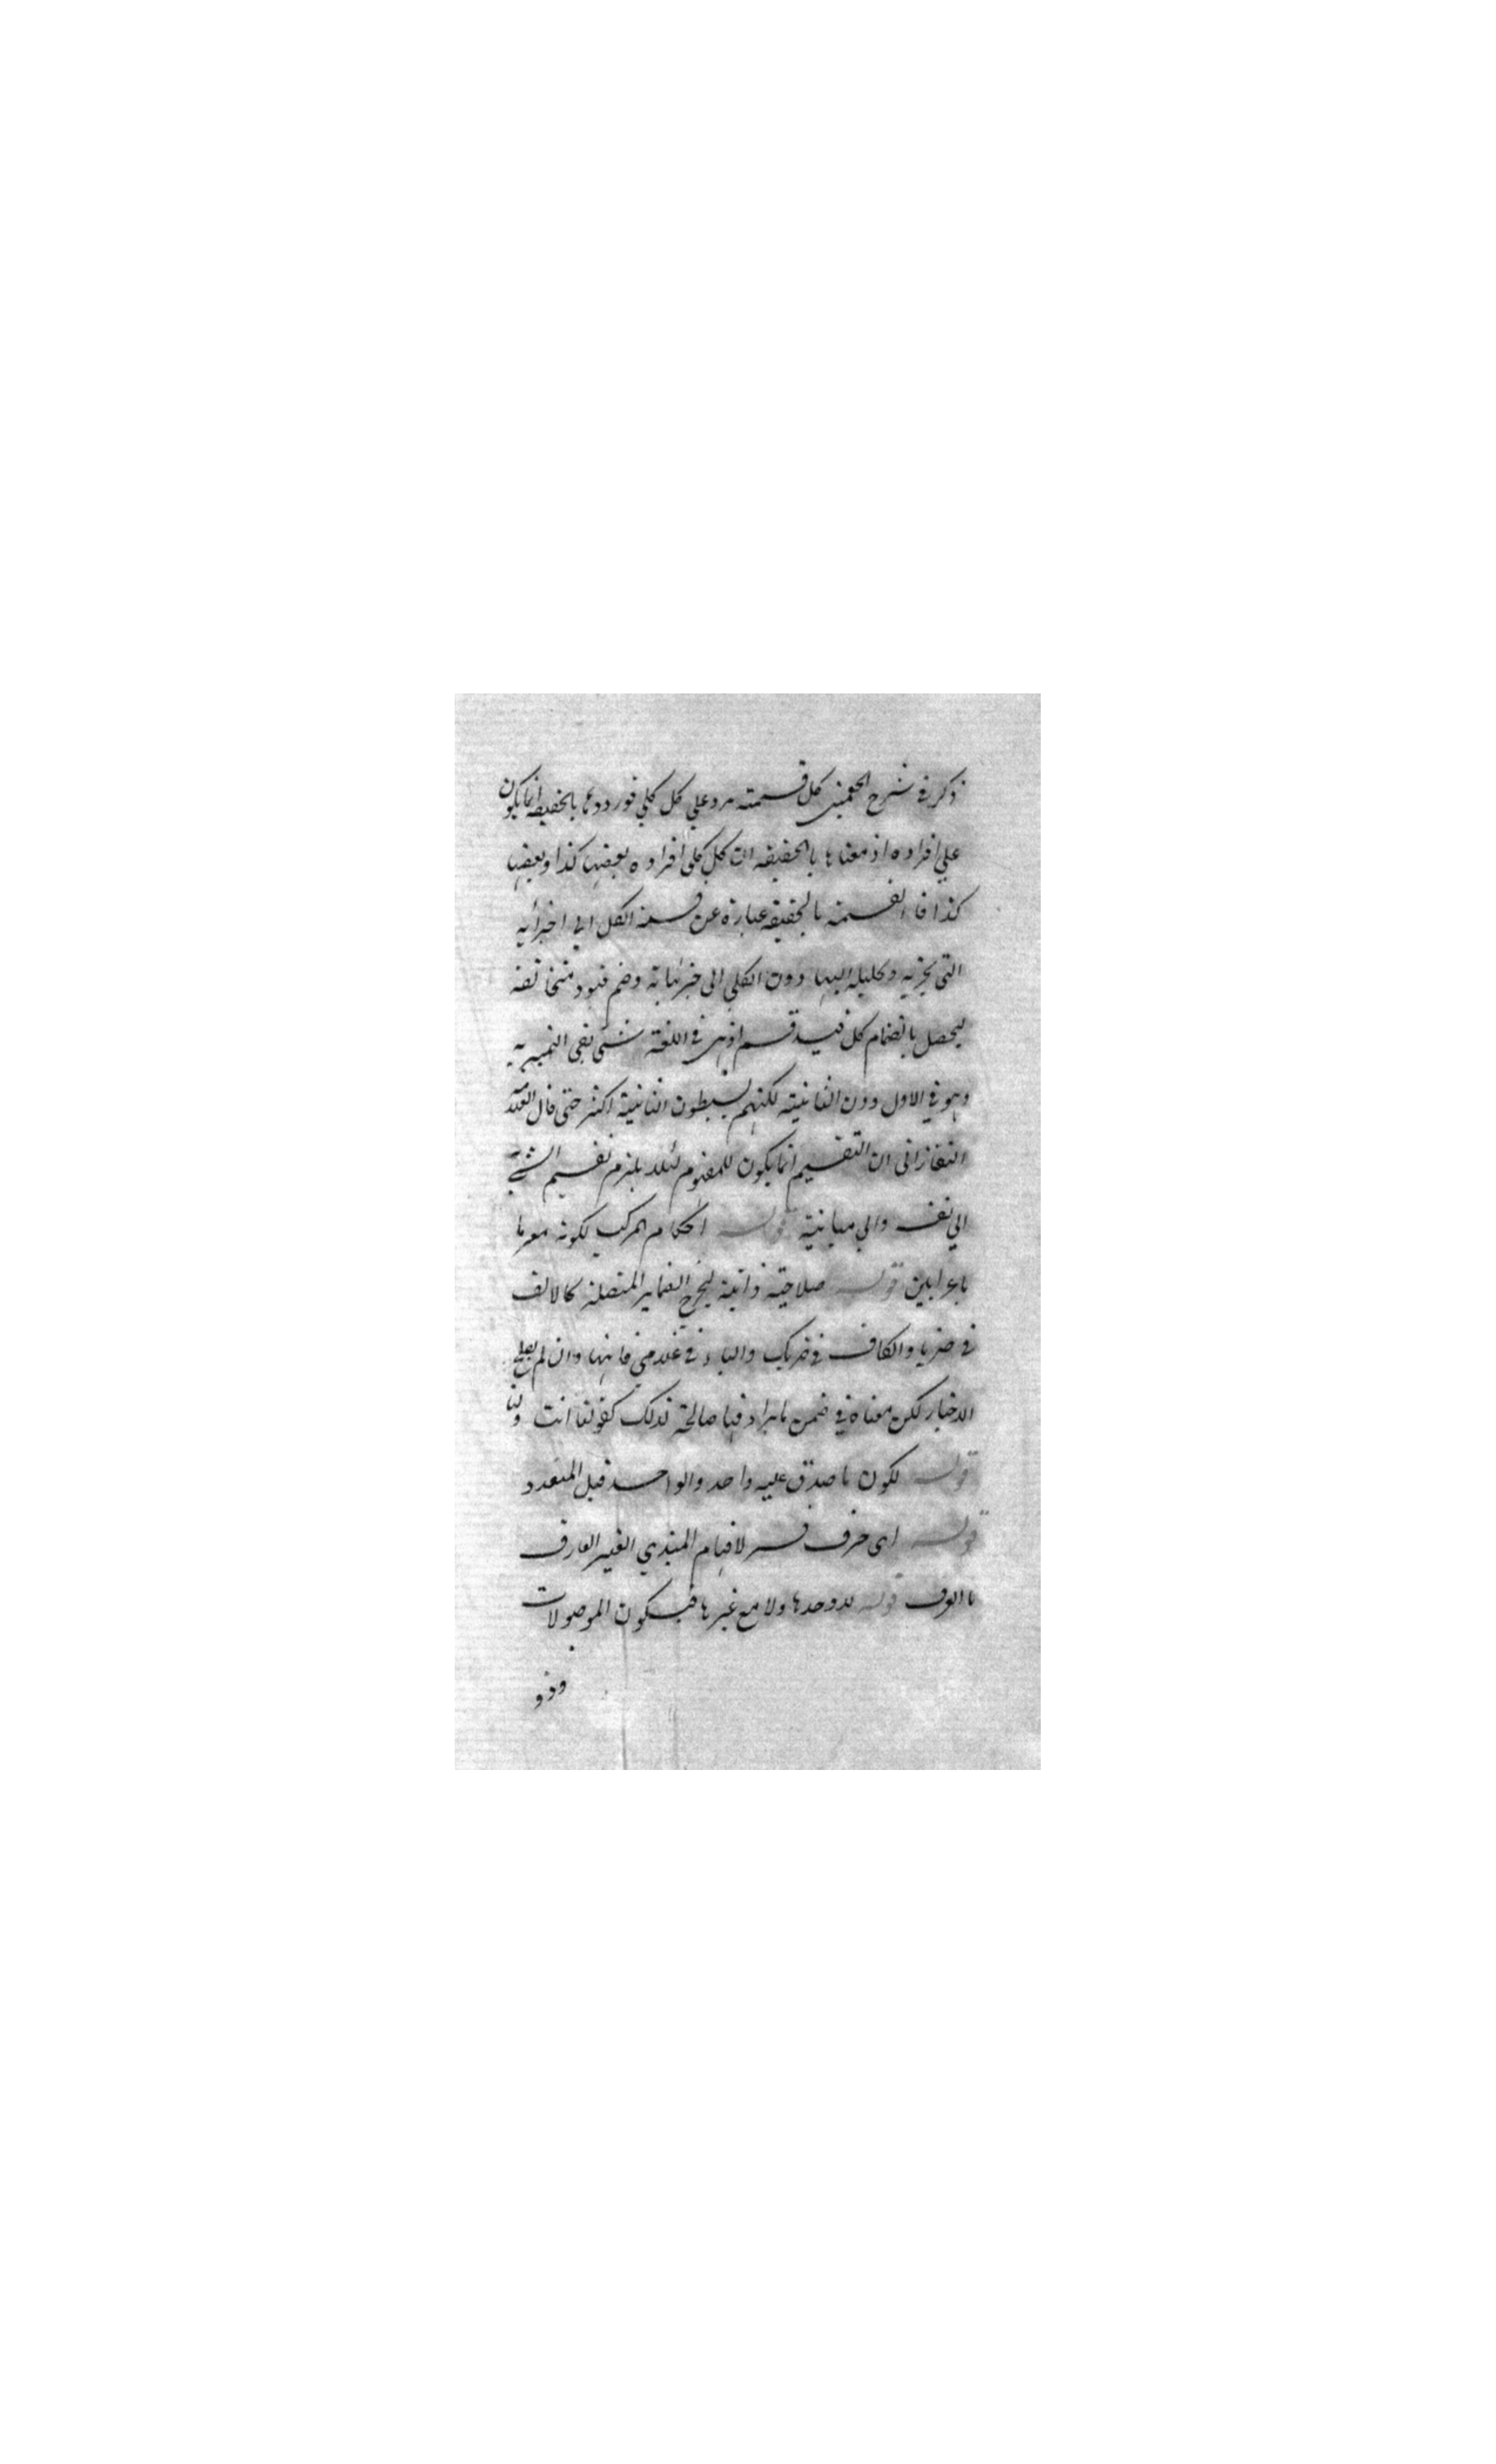 ذكر في شرح الجغميني كل قسمته يرد على كل كلي فوروده بالحقيقة انما يكون
على افراده اذ معناها بالحقيقة ان كل كلي افراده بعضها كذا وبعضها
كذا فالقسمة بالحقيقة عبارة عن قسمة الكل الى اجزائه
التي يجزيه وتحليله اليها دون الكلي الى جزئياته وضم قيود متخالفة
ليحصل بانضمام كل قيد قسم اذ هي في اللغة شيء نفي التمييز به
وهو في الاول دون الثانية لكنهم يبسطون الثانية اكثر حتى قال العلامة
التفتازاني ان التقسيم انما يكون للمفهوم لئلا يلزم تقسيم الشيء
الى نفسه والى مباينة قوله احكام المركب لكونه معربا
باعرابين قوله صلاحية ذاتية ليخرج الضماير المتصلة كالالف
في ضربا والكاف في ضربك والياء في غلامي فانها وان لم يصلح
الاخبار لكن معناه في ضمن ما يرادفها صالحة لذلك كقولنا انت ولنا
قوله لكون ما صدق عليه واحد والواحد قبل المتعدد
قوله اي حرف فسر لافهام المبتدي الغير العارف
بالعرف قوله لا وحدها ولا مع غيرها فيكون الموصولات
وذو